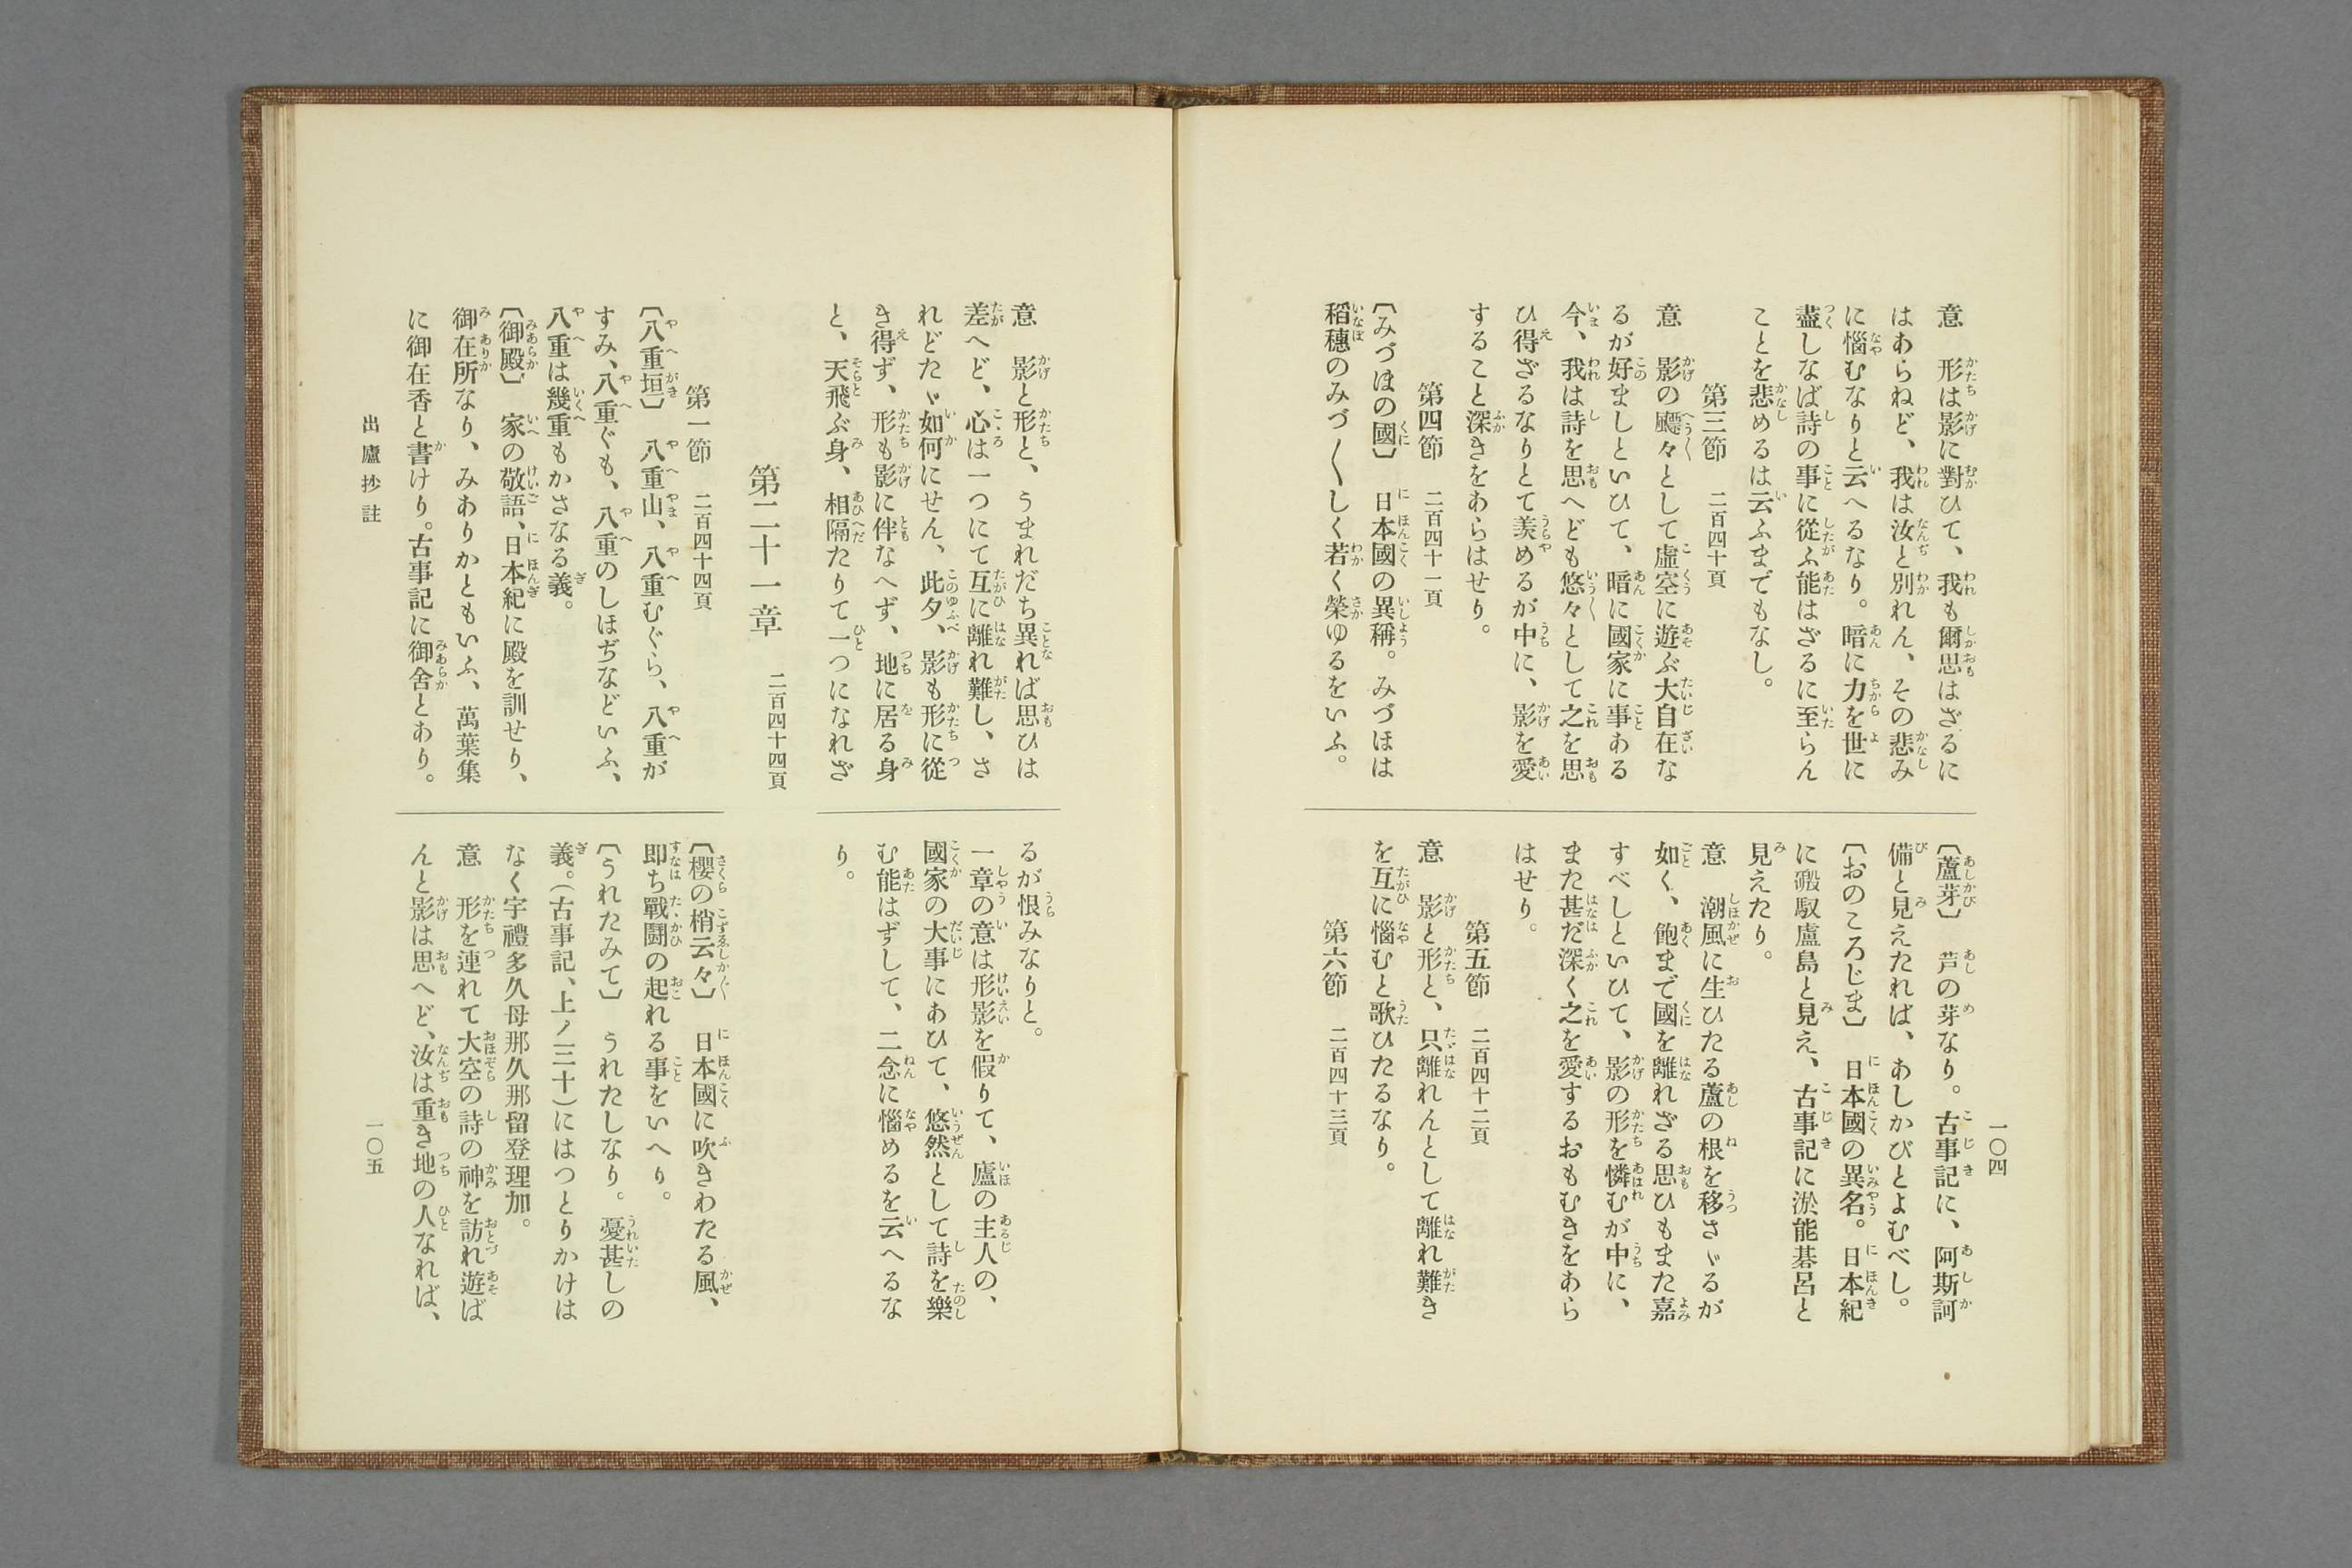 意　形は影に對ひて、我も爾思はざるに
はあらねど、我は汝と別れん、その悲み
に惱むなりと云へるなり。暗に力を世に
盡しなば詩の事に從ふ能はざるに至らん
ことを悲めるは云ふまでもなし。
第三節　二百四十頁
意　影の飃々として虛空に遊ぶ大自在な
るが好ましといひて、暗に國家に事ある
今、我は詩を思へども悠々として之を思
ひ得ざるなりとて羨めるが中に、影を愛
すること深きをあらはせり。
第四節　二百四十一頁
〔みづほの國〕　日本國の異稱。みづほは
稻穗のみづ〱しく若く榮ゆるをいふ。
〔蘆芽〕　芦の芽なり。古事記に、阿斯訶
備と見えたれば、あしかびとよむべし。
〔おのころじま〕　日本國の異名。日本紀
に磤馭盧島と見え、古事記に淤能碁呂と
見えたり。
意　潮風に生ひたる蘆の根を移さゞるが
如く、飽まで國を離れざる思ひもまた嘉
すべしといひて、影の形を憐むが中に、
また甚だ深く之を愛するおもむきをあら
はせり。
第五節　二百四十二頁
意　影と形と、只離れんとして離れ難き
を互に惱むと歌ひたるなり。
第六節　二百四十三頁
一〇四
意　影と形と、うまれだち異れば思ひは
差へど、心は一つにて互に離れ難し、さ
れどたゞ如何にせん、此夕、影も形に從
き得ず、形も影に伴なへず、地に居る身
と、天飛ぶ身、相隔たりて一つになれざ
るが恨みなりと。
一章の意は形影を假りて、廬の主人の、
國家の大事にあひて、悠然として詩を樂
む能はずして、二念に惱めるを云へるな
り。
第二十一章　二百四十四頁
第一節　二百四十四頁
〔八重垣〕　八重山、八重むぐら、八重が
すみ、八重ぐも、八重のしほぢなどいふ、
八重は幾重もかさなる義。
〔御殿〕　家の敬語、日本紀に殿を訓せり、
御在所なり、みありかともいふ、萬葉集
に御在香と書けり。古事記に御舍とあり。
〔櫻の梢云々〕　日本國に吹きわたる風、
即ち戰鬪の起れる事をいへり。
〔うれたみて〕　うれたしなり。憂甚しの
義。（古事記、上ノ三十）にはつとりかけは
なく宇禮多久母那久那留登理加。
意　形を連れて大空の詩の神を訪れ遊ば
んと影は思へど、汝は重き地の人なれば、
出廬抄註
一〇五